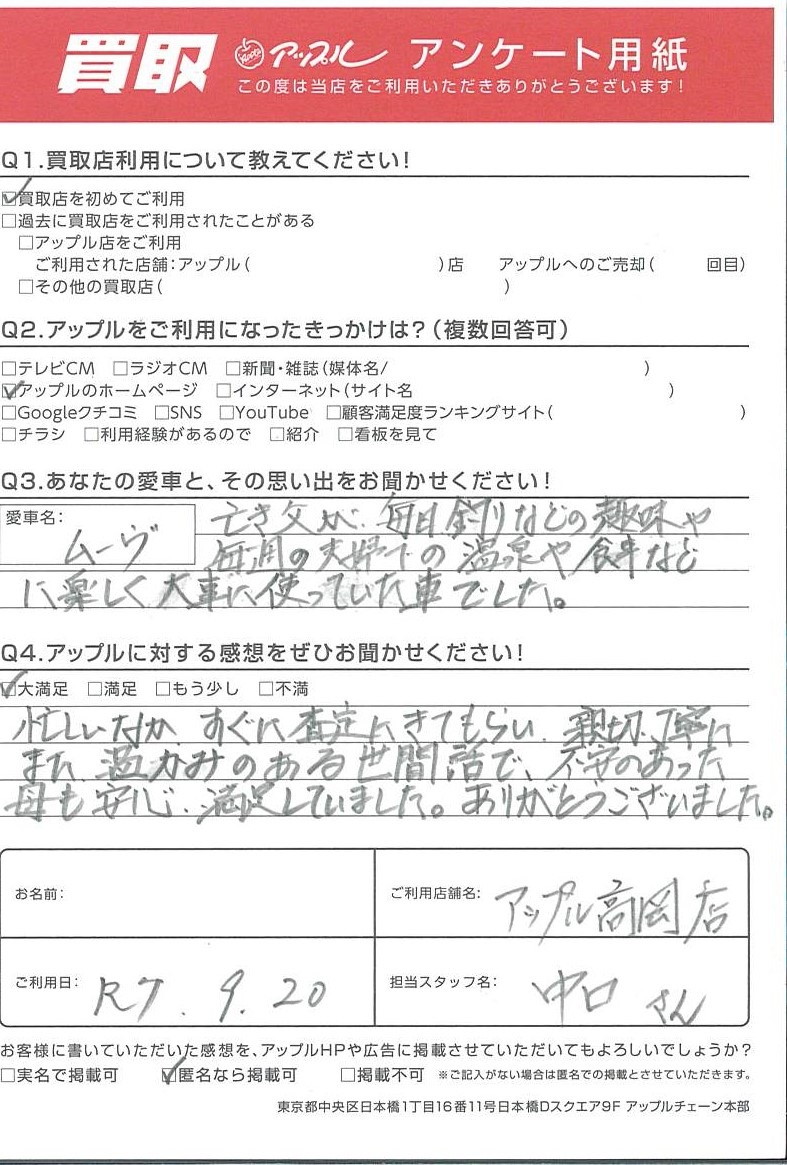 買取 アップル アンケート用紙
この度は当店をご利用いただきありがとうございます!
Q1.買取店利用について教えてください!
☑買取店を初めてご利用
□過去に買取店をご利用されたことがある
□アップル店をご利用
ご利用された店舗:アップル( )店 アップルへのご売却( 回目)
□その他の買取店( )
Q2.アップルをご利用になったきっかけは?(複数回答可)
□テレビCM □ラジオCM □新聞・雑誌(媒体名/ )
☑アップルのホームページ □インターネット(サイト名 )
□Googleクチコミ □SNS □YouTube □顧客満足度ランキングサイト( )
□チラシ □利用経験があるので □紹介 □看板を見て
Q3.あなたの愛車と、その思い出をお聞かせください!
愛車名:
ムーヴ
亡き父が、毎日釣りなどの趣味や
毎週の夫婦での温泉や食事など
に楽しく大事に使っていた車でした。
Q4.アップルに対する感想をぜひお聞かせください!
☑大満足 □満足 □もう少し □不満
忙しいなか、すぐに査定にきてもらい、親切、丁寧に
また、温かみのある世間話で、不安のあった
母も安心、満足していました。ありがとうございました。
お名前:
ご利用店舗名: アップル高岡店
ご利用日: R7.9.20
担当スタッフ名: 中口さん
お客様に書いていただいた感想を、アップルHPや広告に掲載させていただいてもよろしいでしょうか?
□実名で掲載可 ☑匿名なら掲載可 □掲載不可 ※ご記入がない場合は匿名での掲載とさせていただきます。
東京都中央区日本橋1丁目16番11号日本橋Dスクエア9F アップルチェーン本部